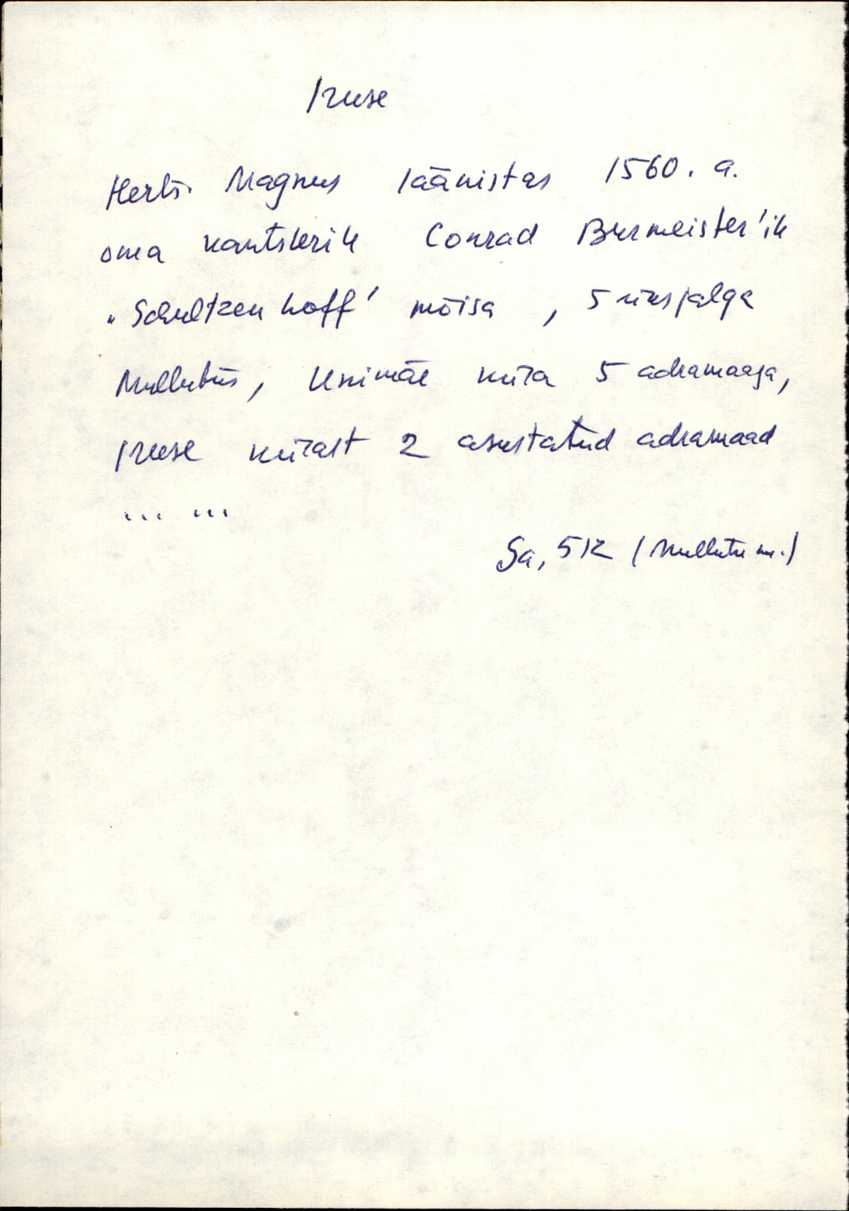 Iruse
Herts. Magnus läänistas 1560. a.
oma kantslerile Conrad Burmeister'ile
„Schultzenhoff' mõisa, 5 üksjalga
Mullutus, Unimäe küla 5 adramaaga,
Iruse külast 2 asustatud adramaad
... ...
Sa, 512 (Mullutu m.)